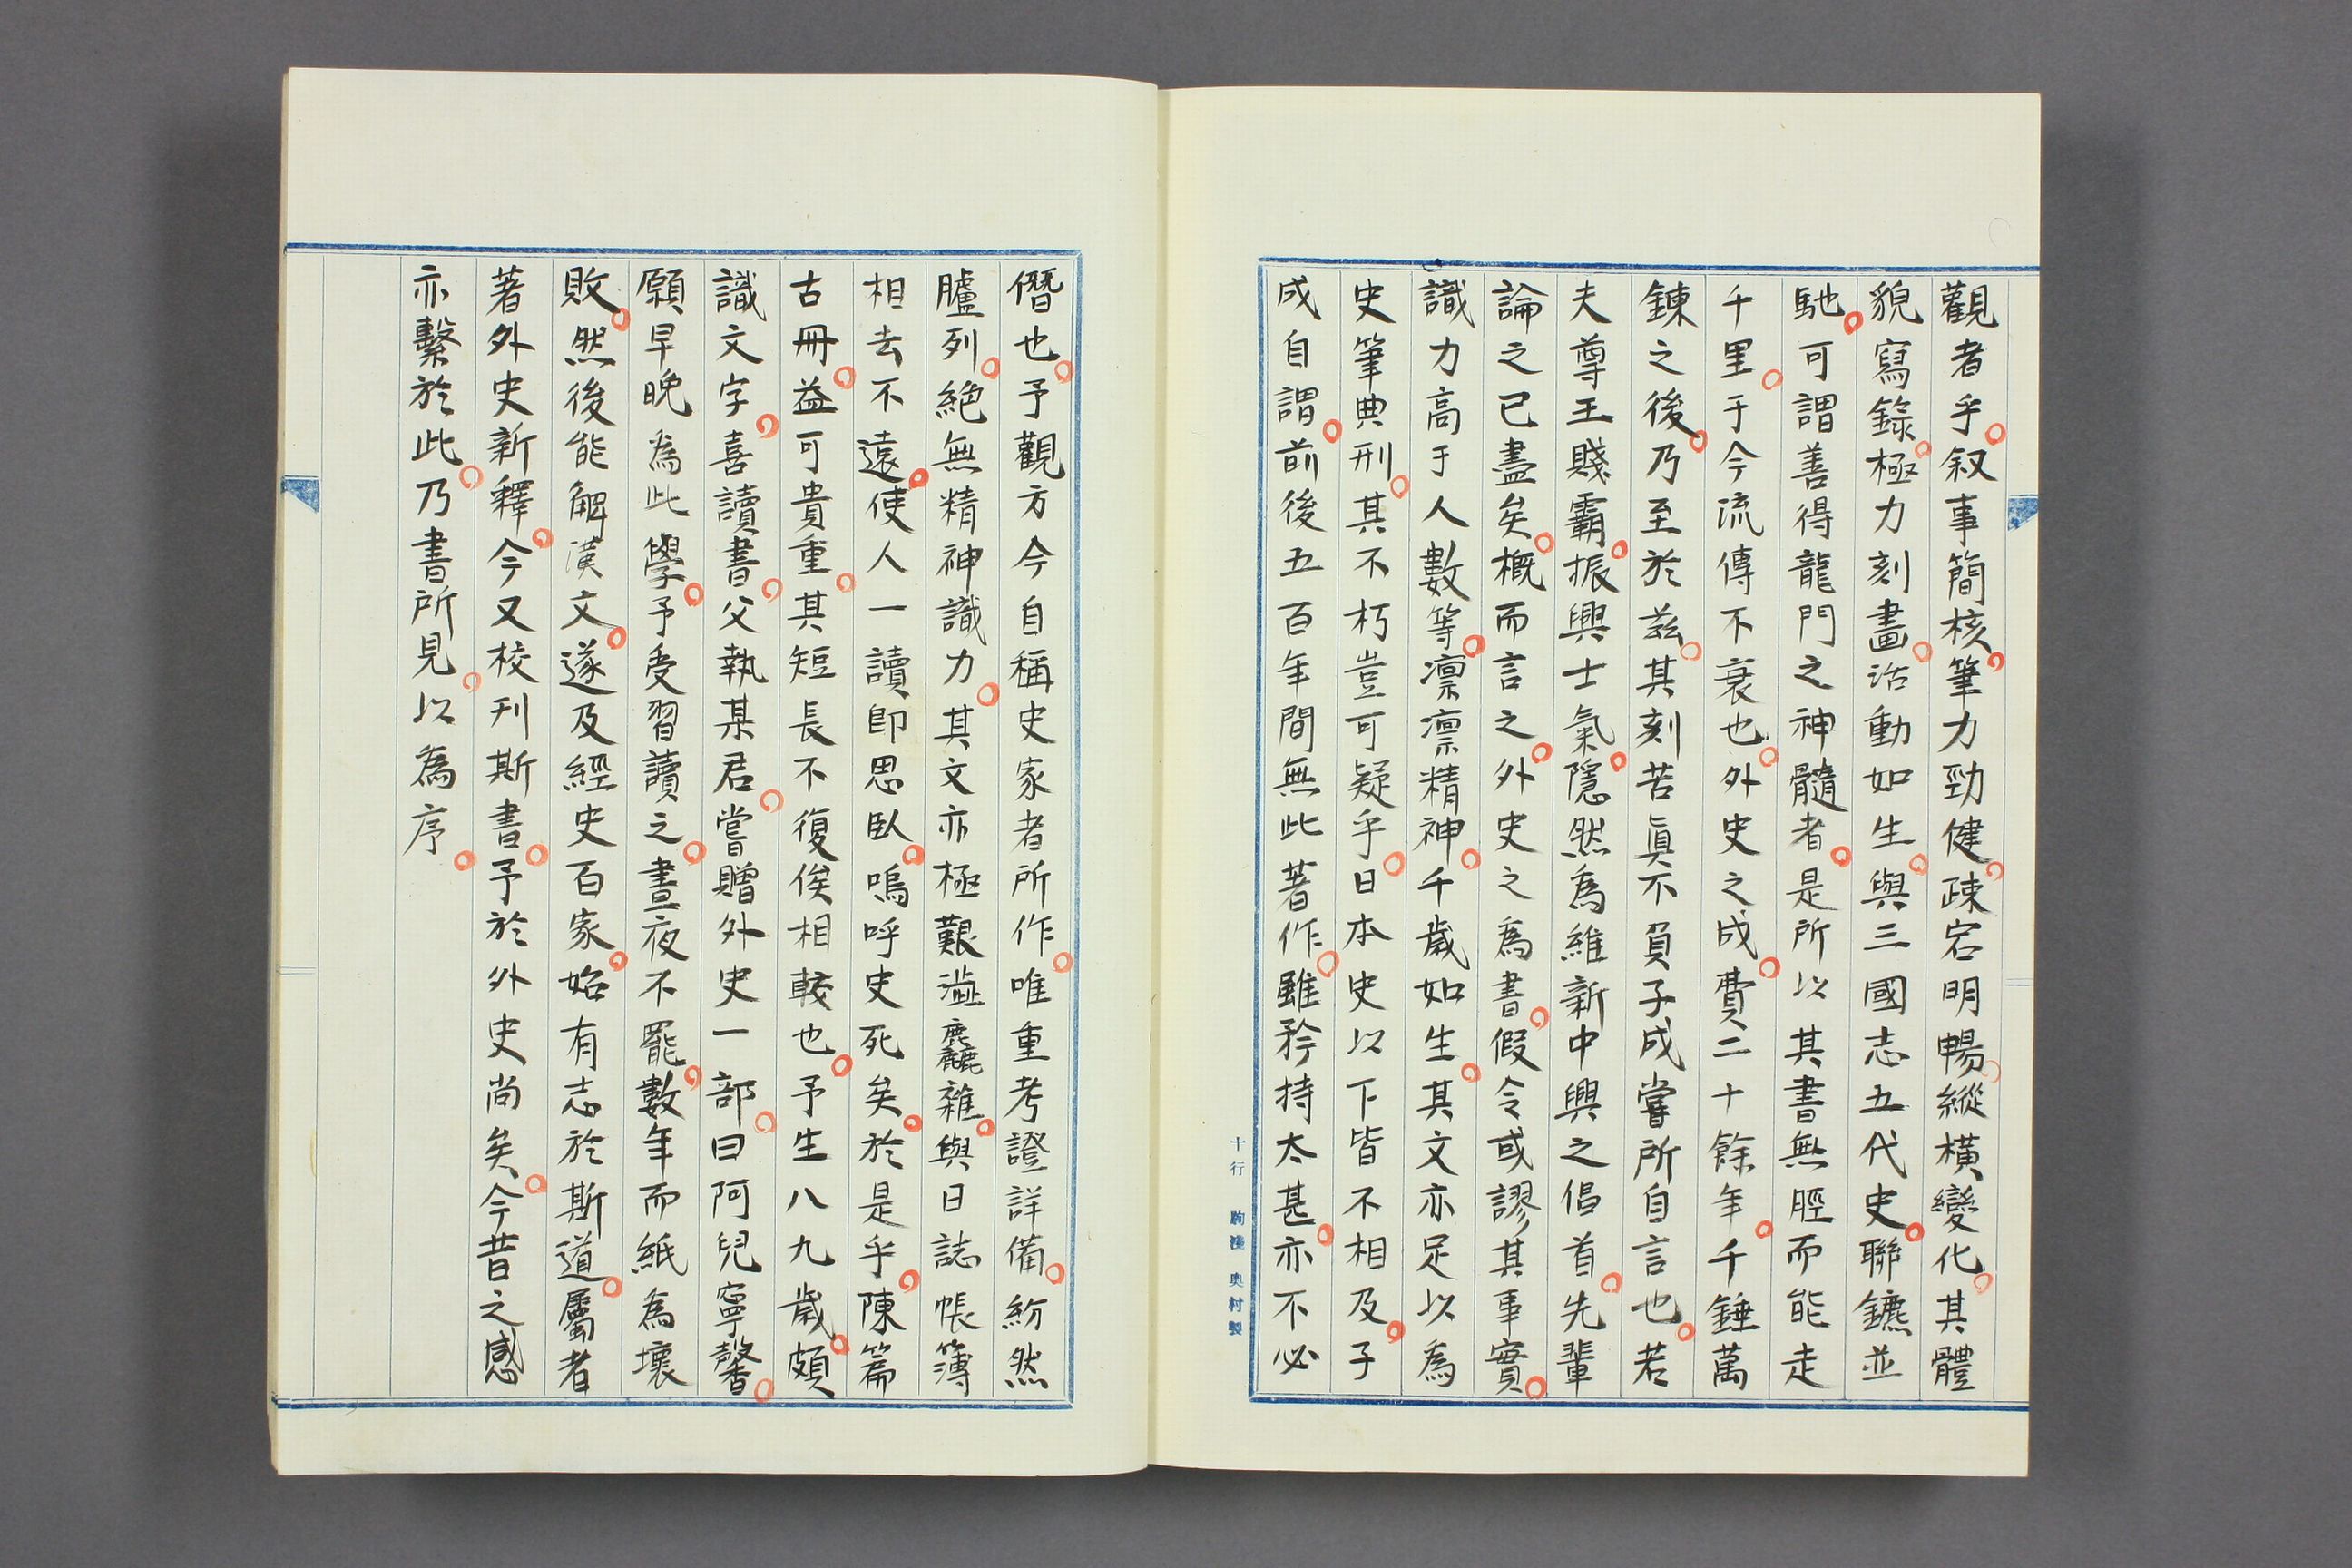 觀者乎叙事簡核筆力勁健疎宕明暢縱橫變化其體
貌寫錄極力刻畫活動如生與三國志五代史聯鑣並
馳可謂善得龍門之神髓者是所以其書無脛而能走
千里于今流傳不衰也外史之成費二十餘年千錘萬
鍊之後乃至於茲其刻苦眞不負子成嘗所自言也若
夫尊王賤霸振興士氣隱然為維新中興之倡首先輩
論之已盡矣概而言之外史之為書假令或謬其事實
識力高于人數等凛凛精神千歲如生其文亦足以為
史筆典刑其不朽豈可疑乎日本史以下皆不相及子
成自謂前後五百年間無此著作雖矜持太甚亦不必
僭也予觀方今自稱史家者所作唯重考證詳備紛然
臚列絕無精神識力其文亦極艱澁麤雜與日誌帳簿
相去不遠使人一讀卽思臥嗚呼史死矣於是乎陳篇
古冊益可貴重其短長不復俟相較也予生八九歲頗
識文字喜讀書父執某君嘗贈外史一部曰阿兒寧馨
願早晚為此學予受習讀之晝夜不罷數年而紙為壞
敗然後能解漢文遂及經史百家始有志於斯道屬者
著外史新釋今又校刊斯書予於外史尚矣今昔之感
亦繫於此乃書所見以為序
十行 駒濱 奥村製